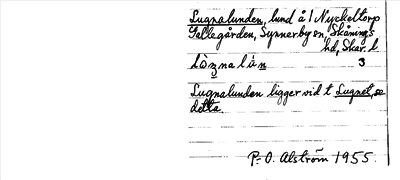 Lugnalunden, lund å 1 Nyckeltorp
Gallegården, Synnerby sn, Skånings
hd, Skar. l
lòʒnalún 3
Lugnalunden ligger vid t Lugnet, se
detta.
P.-O. Alström 1955.